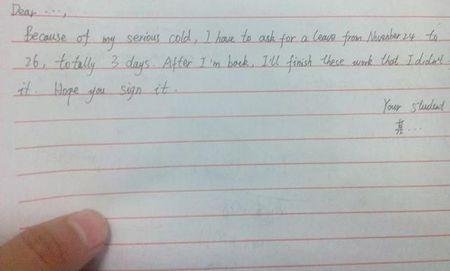 Dear ...,
Because of my serious cold, I have to ask for a leave from November 24 to
26, totally 3 days. After I'm back, I'll finish these work that I didn't
it. Hope you sign it.
Your student